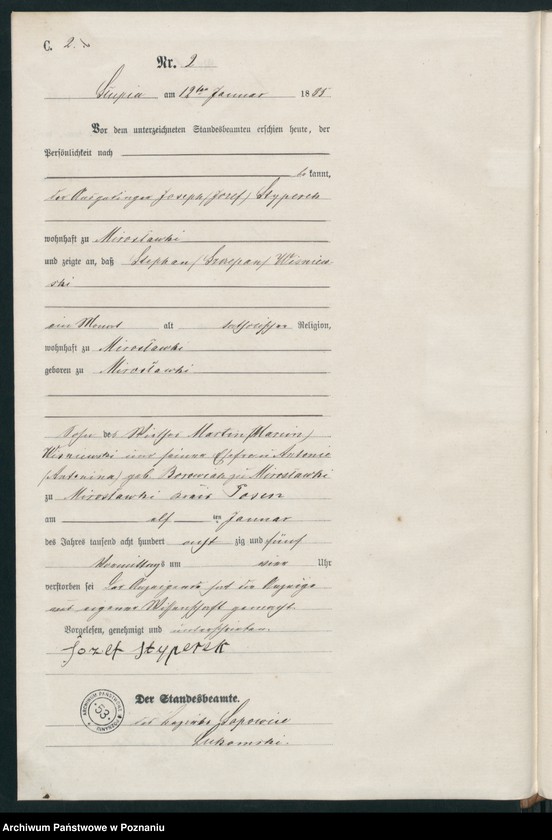 C. 2.
Nr. 2
Słupia am 12ten Januar 1885
Vor dem unterzeichneten Standesbeamten erschien heute, der
Persönlichkeit nach
bekannt,
der Joseph /Jozef/ Styperek
wohnhaft zu Mirosławki
und zeigte an, daß Stephan /Szczepan/ Wisniew-
ski
ein Monat alt katholischer Religion,
wohnhaft zu Mirosławki
geboren zu Mirosławki
Sohn des Martin /Marcin/
Wisniewski und seiner Ehefrau Antonie
/Antonina/ geb. Borowiak zu Mirosławki
zu Mirosławki Kreis Posen
am elf ten Januar
des Jahres tausend acht hundert acht zig und fünf
Vormittags um vier Uhr
verstorben sei Der Anzeigende hat die Anzeige
aus eigener Wissenschaft gemacht
Vorgelesen, genehmigt und unterschrieben.
Józef Styperek
Der Standesbeamte.
Łukomski.
ARCHIWUM PAŃSTWOWE
53
POZNANIU
Archiwum Państwowe w Poznaniu